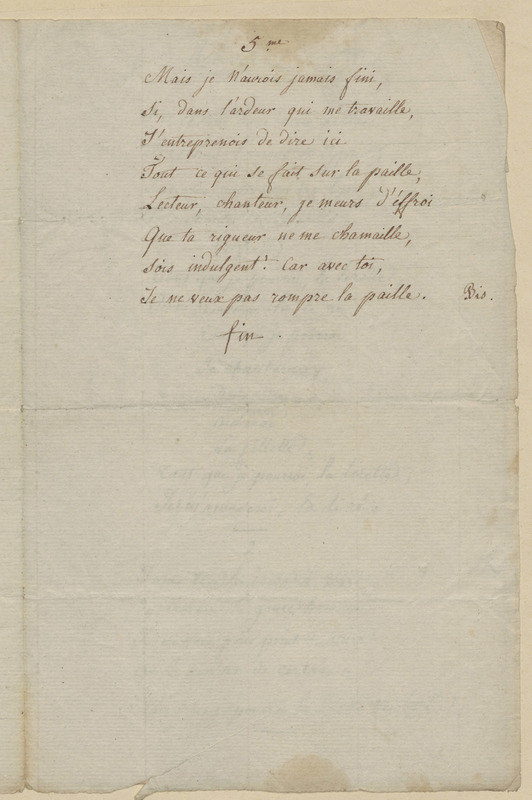 5.me
Mais je n'aurois jamais fini,
Si, dans l'ardeur qui me travaille,
J'entreprenois de dire ici
Tout ce qui se fait sur la paille;
Lecteur, chanteur, je meurs d'éffroi
Que ta rigueur ne me chamaille,
Sois indulgent! Car avec toi,
Je ne veux pas rompre la paille. Bis.
fin.